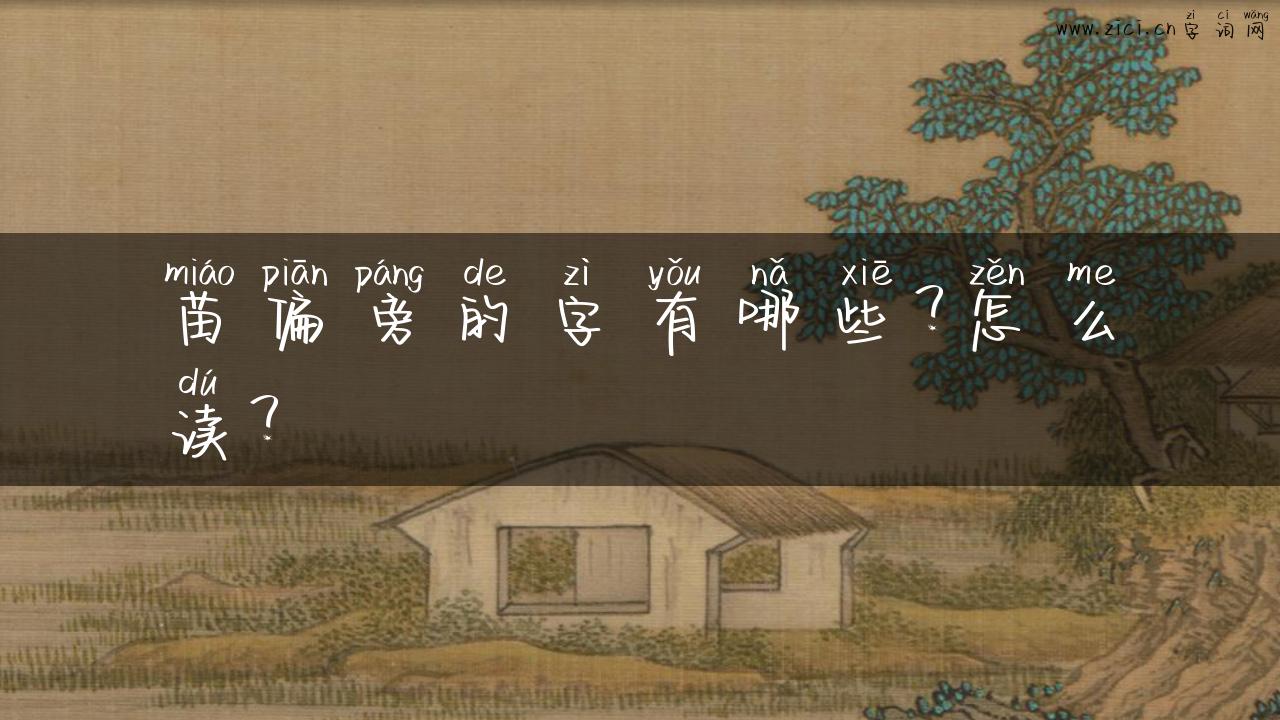 zì cí wǎng
www.zici.cn字词网
miáo piān páng de zì yǒu nǎ xiē zěn me
苗偏旁的字有哪些？怎么
dú
读？